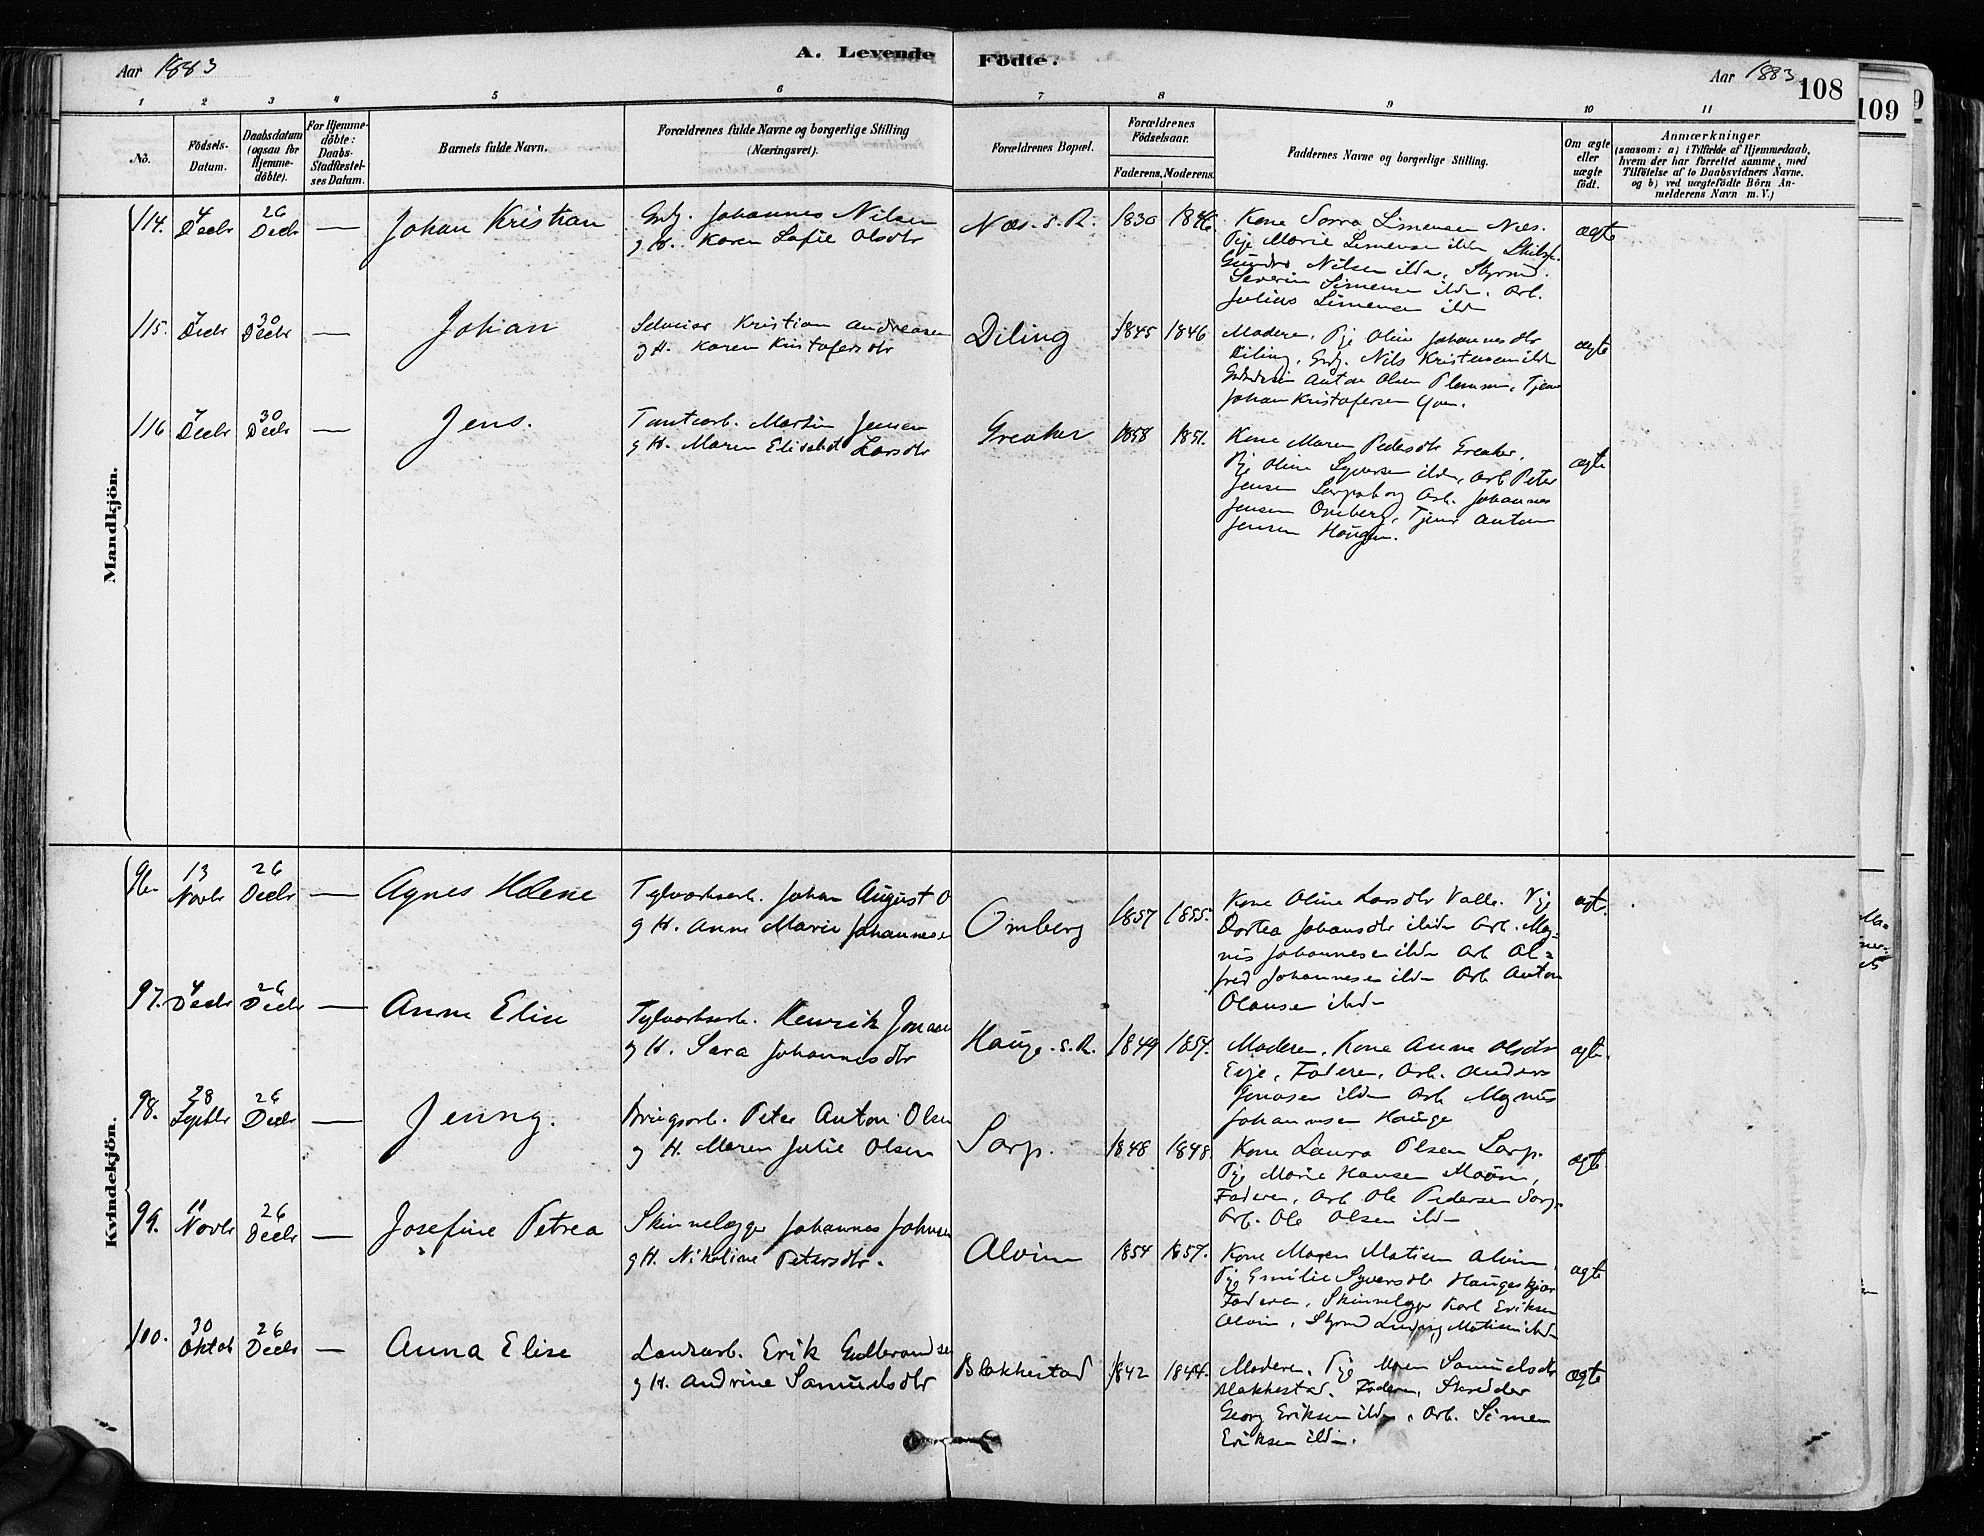 A. Levende Födte.
Aar 1883
Aar 1883
108
109
1 2 3 4 5 6 7 8 9 10 11
No.
Födsels-Datum.
Daabsdatum (ogsaa for Hjemme-döbte).
For Hjemme-döbte: Daabs-Stadfæstel-ses Datum.
Barnets fulde Navn.
Forældrenes fulde Navne og borgerlige Stilling (Næringsvei).
Forældrenes Bopæl.
Forældrenes Födselsaar.
Faderens. Moderens.
Faddernes Navne og borgerlige Stilling.
Om ægte eller uægte födt.
Anmærkninger
(saasom: a) i Tilfælde af Hjemmedaab, hvem der har forrettet samme, med Tilföielse af to Daabsvidners Navne, og b) ved uægtefödte Börn An-melderens Navn m. V.)
Mandkjön.
114. 4 Decbr 26 Decbr — Johan Kristian
Grdj. Johannes Nilsen
g H. Karen Sofie Olsdtr
Næs. s. R. 1830 1846.
Kone Sorra Simensen Næs.
Pije Marie Simensen ibdm
Nilsen ibdm,
Severin Simensen ibdm. Arb.
Julius Simensen ibdm
ægte
115. 7 Decbr 30 Decbr — Johan
Selveier Kristian Andreasen
g H. Karen Kristofersdtr
Diling 1845 1846
Moderen, Pije Oline Johannesdtr
Diling, Grdj. Nils Kristensen ibdm
Anton Olsen Tjener
Johan Kristofersen
ægte
116 7 Decbr 30 Decbr — Jens.
Tomtearb. Martin Jensen
g H. Maren Elisabet Larsdtr
Greaker 1858 1851.
Kone Maren Pedersdtr Greaker,
Pije Oline Syversen ibdm, Arb Peter
Jensen Sarpsborg Arb. Johannes
Jensen Omberg, Tjener Anton
Jensen Haugen.
ægte
Kvindekjön.
96. 13 Novbr 26 Decbr — Agnes Helene
Teglværksarb. Johan August O
g H. Anne Marie Johannesen
Omberg 1857 1855.
Kone Oline Larsdtr Valle. Pije
Dortea Johansdtr ibidm Arb. Mag=
nus Johannesen ibdm Arb Al=
fred Johannesen ibdm Arb Anton
Olausen ibdm
ægt.
97. 4 Decbr 26 Decbr — Anne Elise
Teglværksarb. Henrik Jonasen
g H. Sara Johannesdtr
Hauge. s. R. 1849 1857.
Moderen, Kone Anne Olsdtr
Eije, Faderen, Arb. Anders
Jonasen ibdm Arb Magnus
Johannesen Hauge
ægte
98. 28 Septbr 26 Decbr — Jenny.
Brugsarb. Peter Anton Olsen
g H. Maren Julie Olsen
Sarp. 1848 1848.
Kone Laura Olsen Sarp.
Pije Marie Hansen
Faderen, Arb Ole Pedersen Sarp,
Arb. Ole Olsen ibdm
ægte
99. 11 Novbr 26 Decbr — Josefine Petrea
Skinnelægger Johannes Johnsen
g H. Nikoline Petersdtr.
Alvim 1854 1857.
Kone Maren Matisen Alvim,
Pije Emilie Syversdtr
Faderen, Skinnelægger Karl Eriksen
Alvim, Ludvig Matisen ibdm
ægte
100. 30 Oktob 26 Decbr — Anna Elise
Landarb. Erik Gulbrandsen
g H. Andrine Samuelsdtr
Blakkestad 1842 1844.
Moderen, Pije Maren Samuelsdtr
Blakkestad. Faderen, Skredder
Georg Eriksen ibdm, Arb. Simen
Eriksen ibdm.
ægte